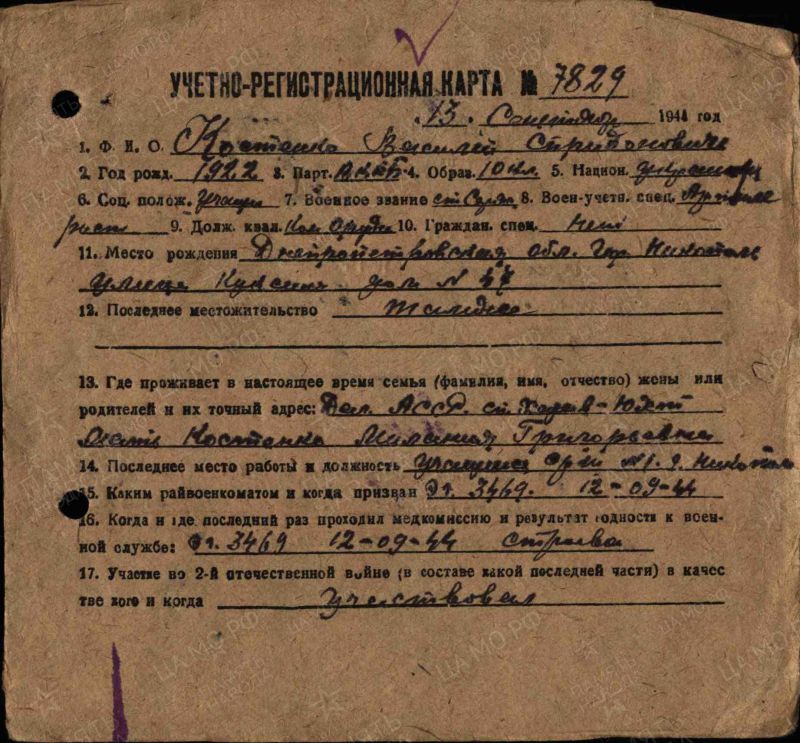 УЧЕТНО-РЕГИСТРАЦИОННАЯ КАРТА № 7829
13. Сентября 1944 год
1. Ф. И. О. Костенко Василий Спридонович
2. Год рожд. 1922 3. Парт. 4. Образ. 10 кл. 5. Национ. украинец
6. Соц. полож. Учащи 7. Военное звание ст Серж 8. Воен-учетн. спец. Артиле
рист 9. Долж. квал. Ком Оруди 10. Граждан. спец. нет
11. Место рождения Днепропетровская обл. Гор Никополь
улица дом N 47
12. Последнее местожительство
13. Где проживает в настоящее время семья (фамилия, имя, отчество) жены или
родителей и их точный адрес: АССР. ст.
Мать Костенко Григорьевна
14. Последнее место работы и должность N 1. г. Никополь
15. Каким райвоенкоматом и когда призван Эг. 3469. 12-09-44
16. Когда и где последний раз проходил медкомиссию и результат годности к воен-
ной службе: Эг. 3469 12-09-44
17. Участие во 2-й отечественной войне (в составе какой последней части) в качес
тве кого и когда участвовал
ЦА МО РФ
ПАМЯТЬ